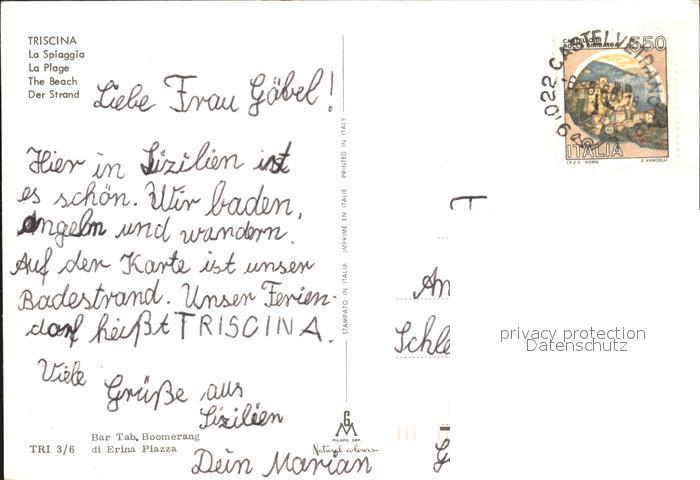 TRISCINA
La Spiaggia
La Plage
The Beach
Der Strand
Liebe Frau Gäbel!
Hier in Sizilien ist
es schön. Wir baden,
angeln und wandern.
Auf der Karte ist unser
Badestrand. Unser Ferien-
dorf heißt TRISCINA.
Viele Grüße aus
Sizilien
Dein Marian
TRI 3/6
Bar Tab. Boomerang
di Erina Piazza
STAMPATO IN ITALIA IMPRIMÉ EN ITALIE PRINTED IN ITALY
GM
MILANO DEP.
Natural colours
550
ITALIA
I.P.Z.S. - ROMA E. VANGELLI
91022 CASTELVETRANO
An
Schle
privacy protection
Datenschutz